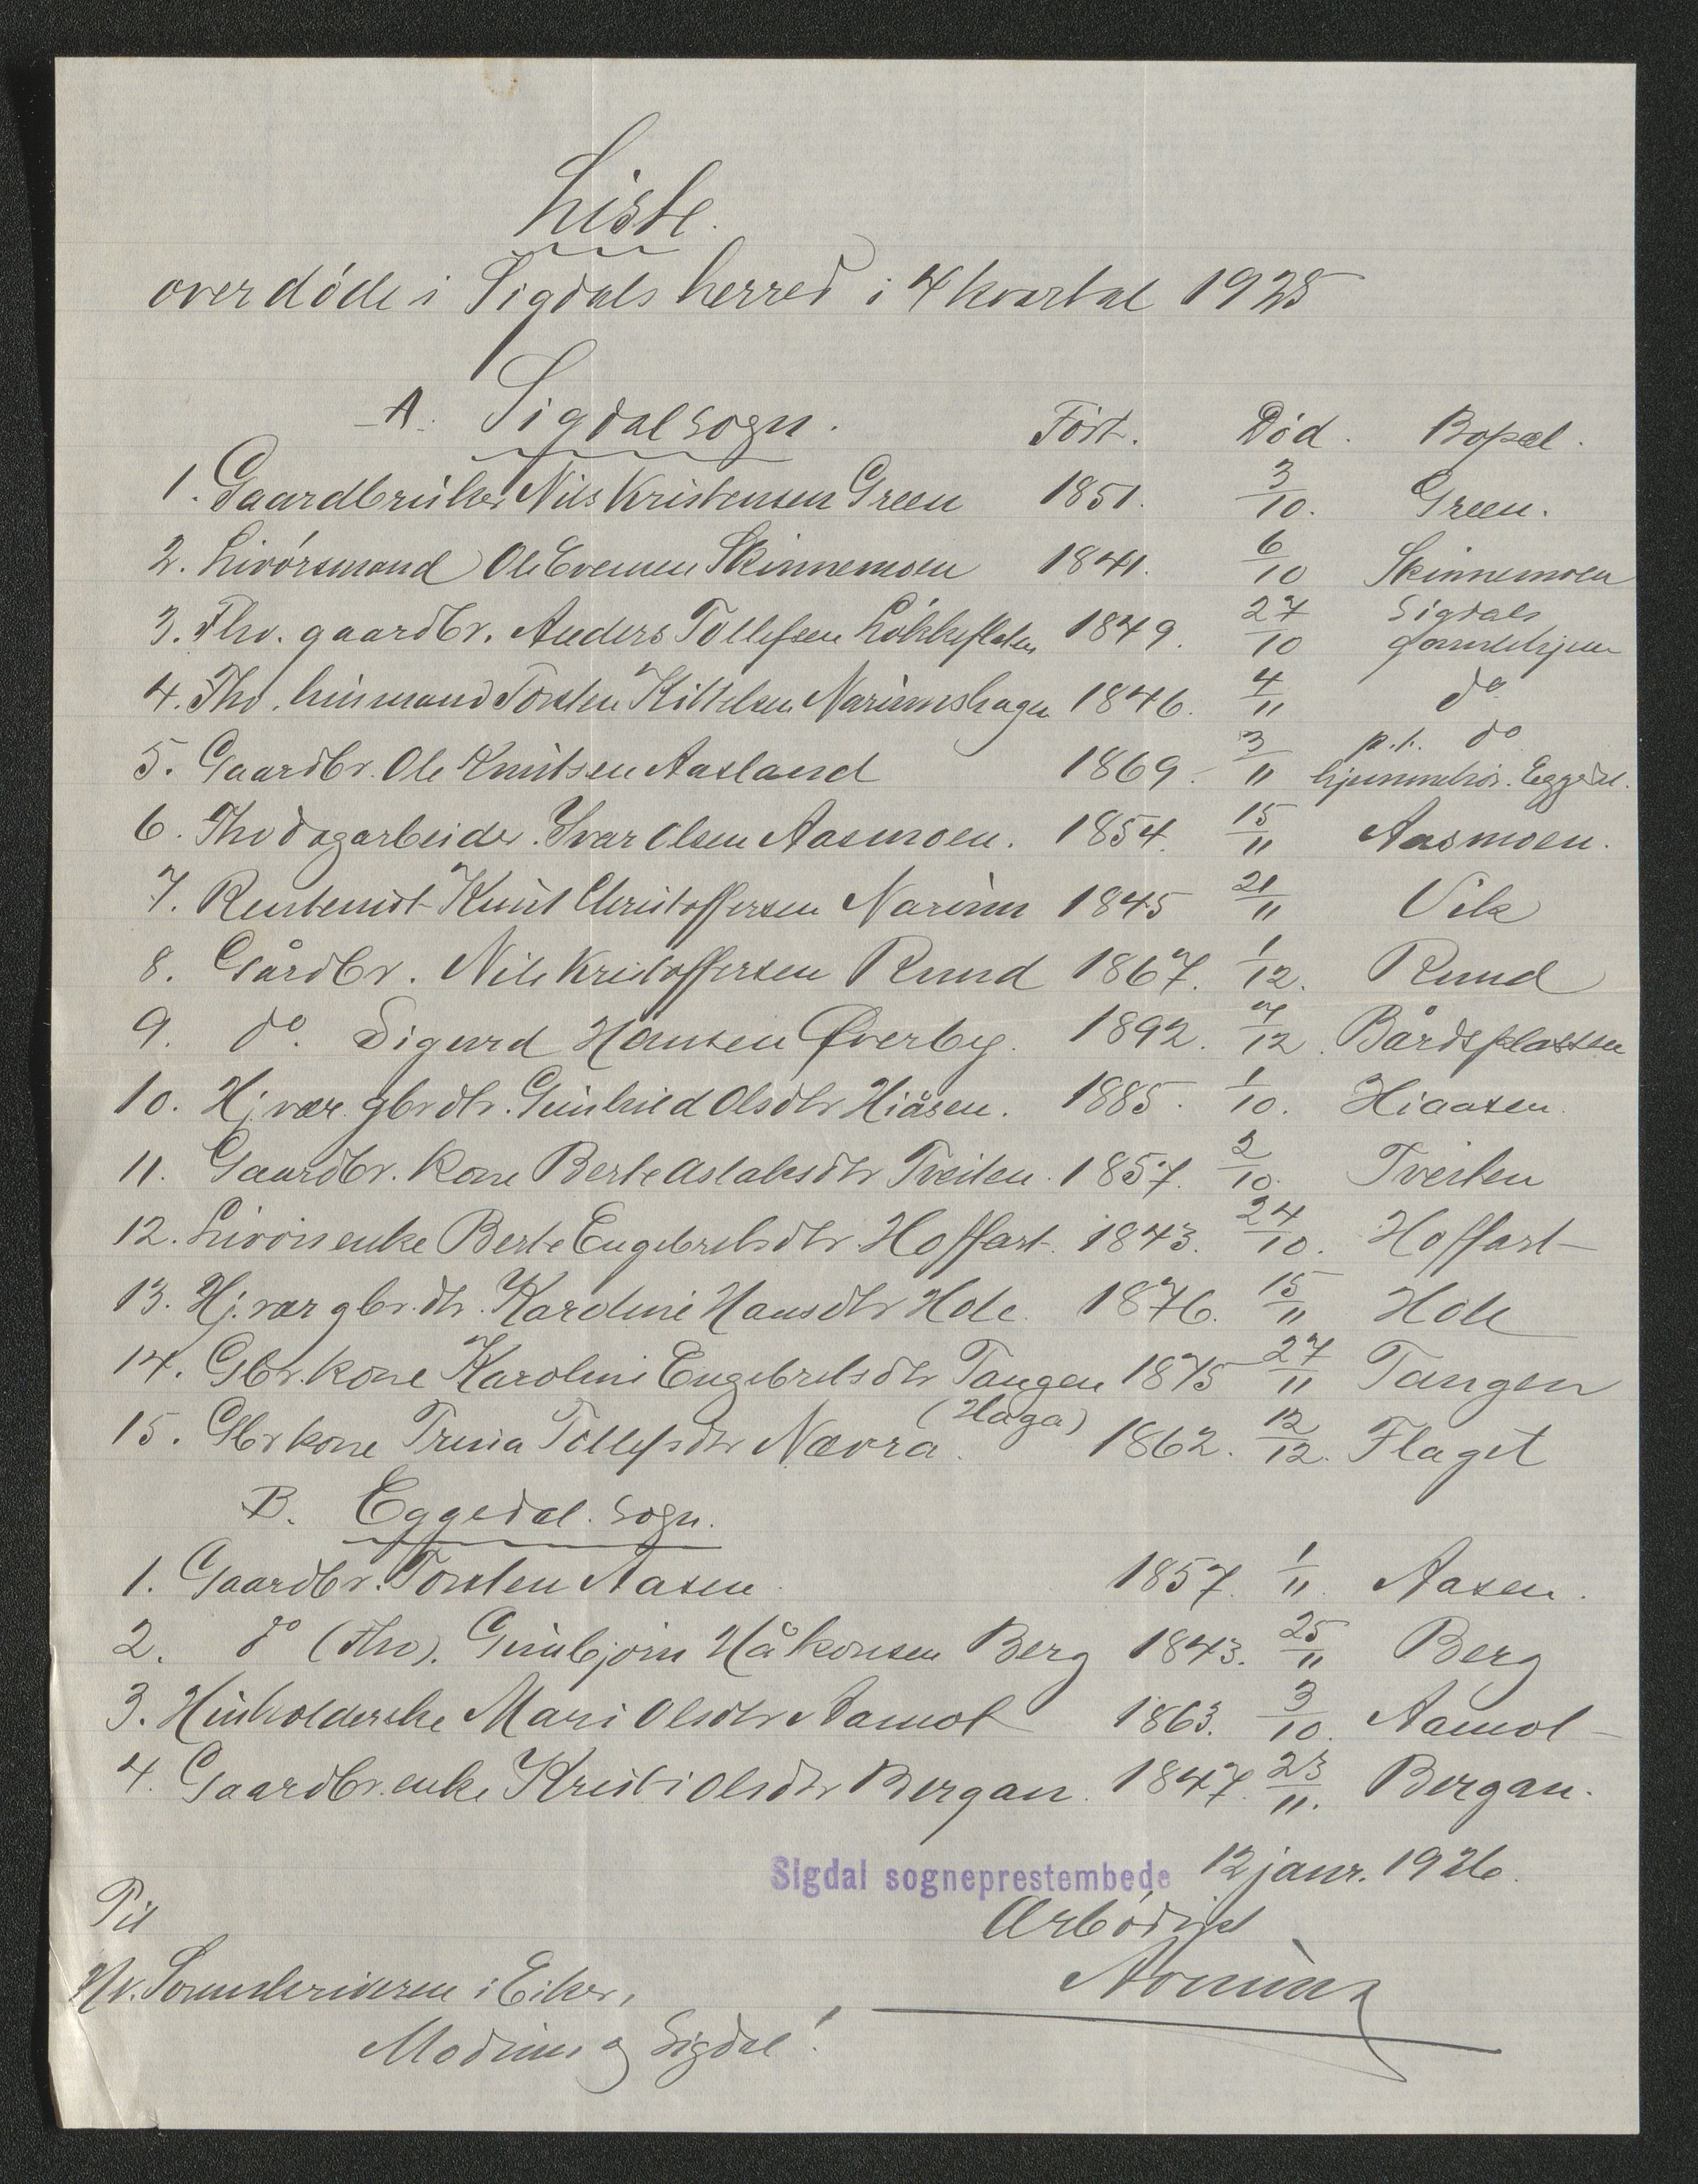 Liste.
over døde i Sigdals herred i 4 kvartal 1925
A. Sigdal sogn. Født. Død. Bopæl.
1. Gaardbruker Nils Kristensen Green 1851. 3/10. Green.
2. Livørsmand Ole Evensen Skinnemoen 1841. 6/10 Skinnemoen
3. Fhv. gaardbr. Anders Tollefsen Løkkeflaten 1849. 27/10 Sigdals gamlehjem
4. Fhv. husmand Torsten Kittelsen Narumshagen 1846. 4/11 do
5. Gaardbr. Ole Knutsen Aasland 1869. 3/11 p.t. do hjemmehør. Eggedal.
6. Fhv dagarbeider Ivar Olsen Aasmoen. 1854. 15/11 Aasmoen.
7. Rentenist Knut Christoffersen Narum 1845 21/11 Vik
8. Gårdbr. Nils Kristoffersen Rund 1867. 1/12. Rund
9. do. Sigurd Hansen Øverby. 1892. 7/12. Bårdsplassen
10. Hj.vær. gbrdtr. Gunhild Olsdtr Hiåsen. 1885. 1/10. Hiaasen.
11. Gaardbr. kone Berte Aslaksdtr Tveiten. 1857. 2/10. Tveiten
12. Livørsenke Berte Engebretsdtr Hoffart. 1843. 24/10. Hoffart
13. Hj.vær gbr.dtr. Karoline Hansdtr Hole. 1876. 15/11 Hole
14. Gbr. kone Karoline Engebretsdtr Tangen 1875 27/11 Tangen
15. Gbr kone Trina Tollefsdtr Nævra. (Haga) 1862. 12/12. Flaget
B. Eggedal. sogn.
1. Gaardbr. Torsten Aasen 1857. 1/11. Aasen.
2. do (Fhv). Gunbjørn Håkonsen Berg 1843. 25/11 Berg
3. Husholderske Mari Olsdtr Aamot 1863. 3/10. Aamot
4. Gaardbr. enke Kristi Olsdtr Bergan. 1847. 23/11. Bergan.
Sigdal sogneprestembede 12 janr. 1926.
Ærbødigst
Til
Hr. Sorenskriveren i Eiker,
Modum og Sigdal!